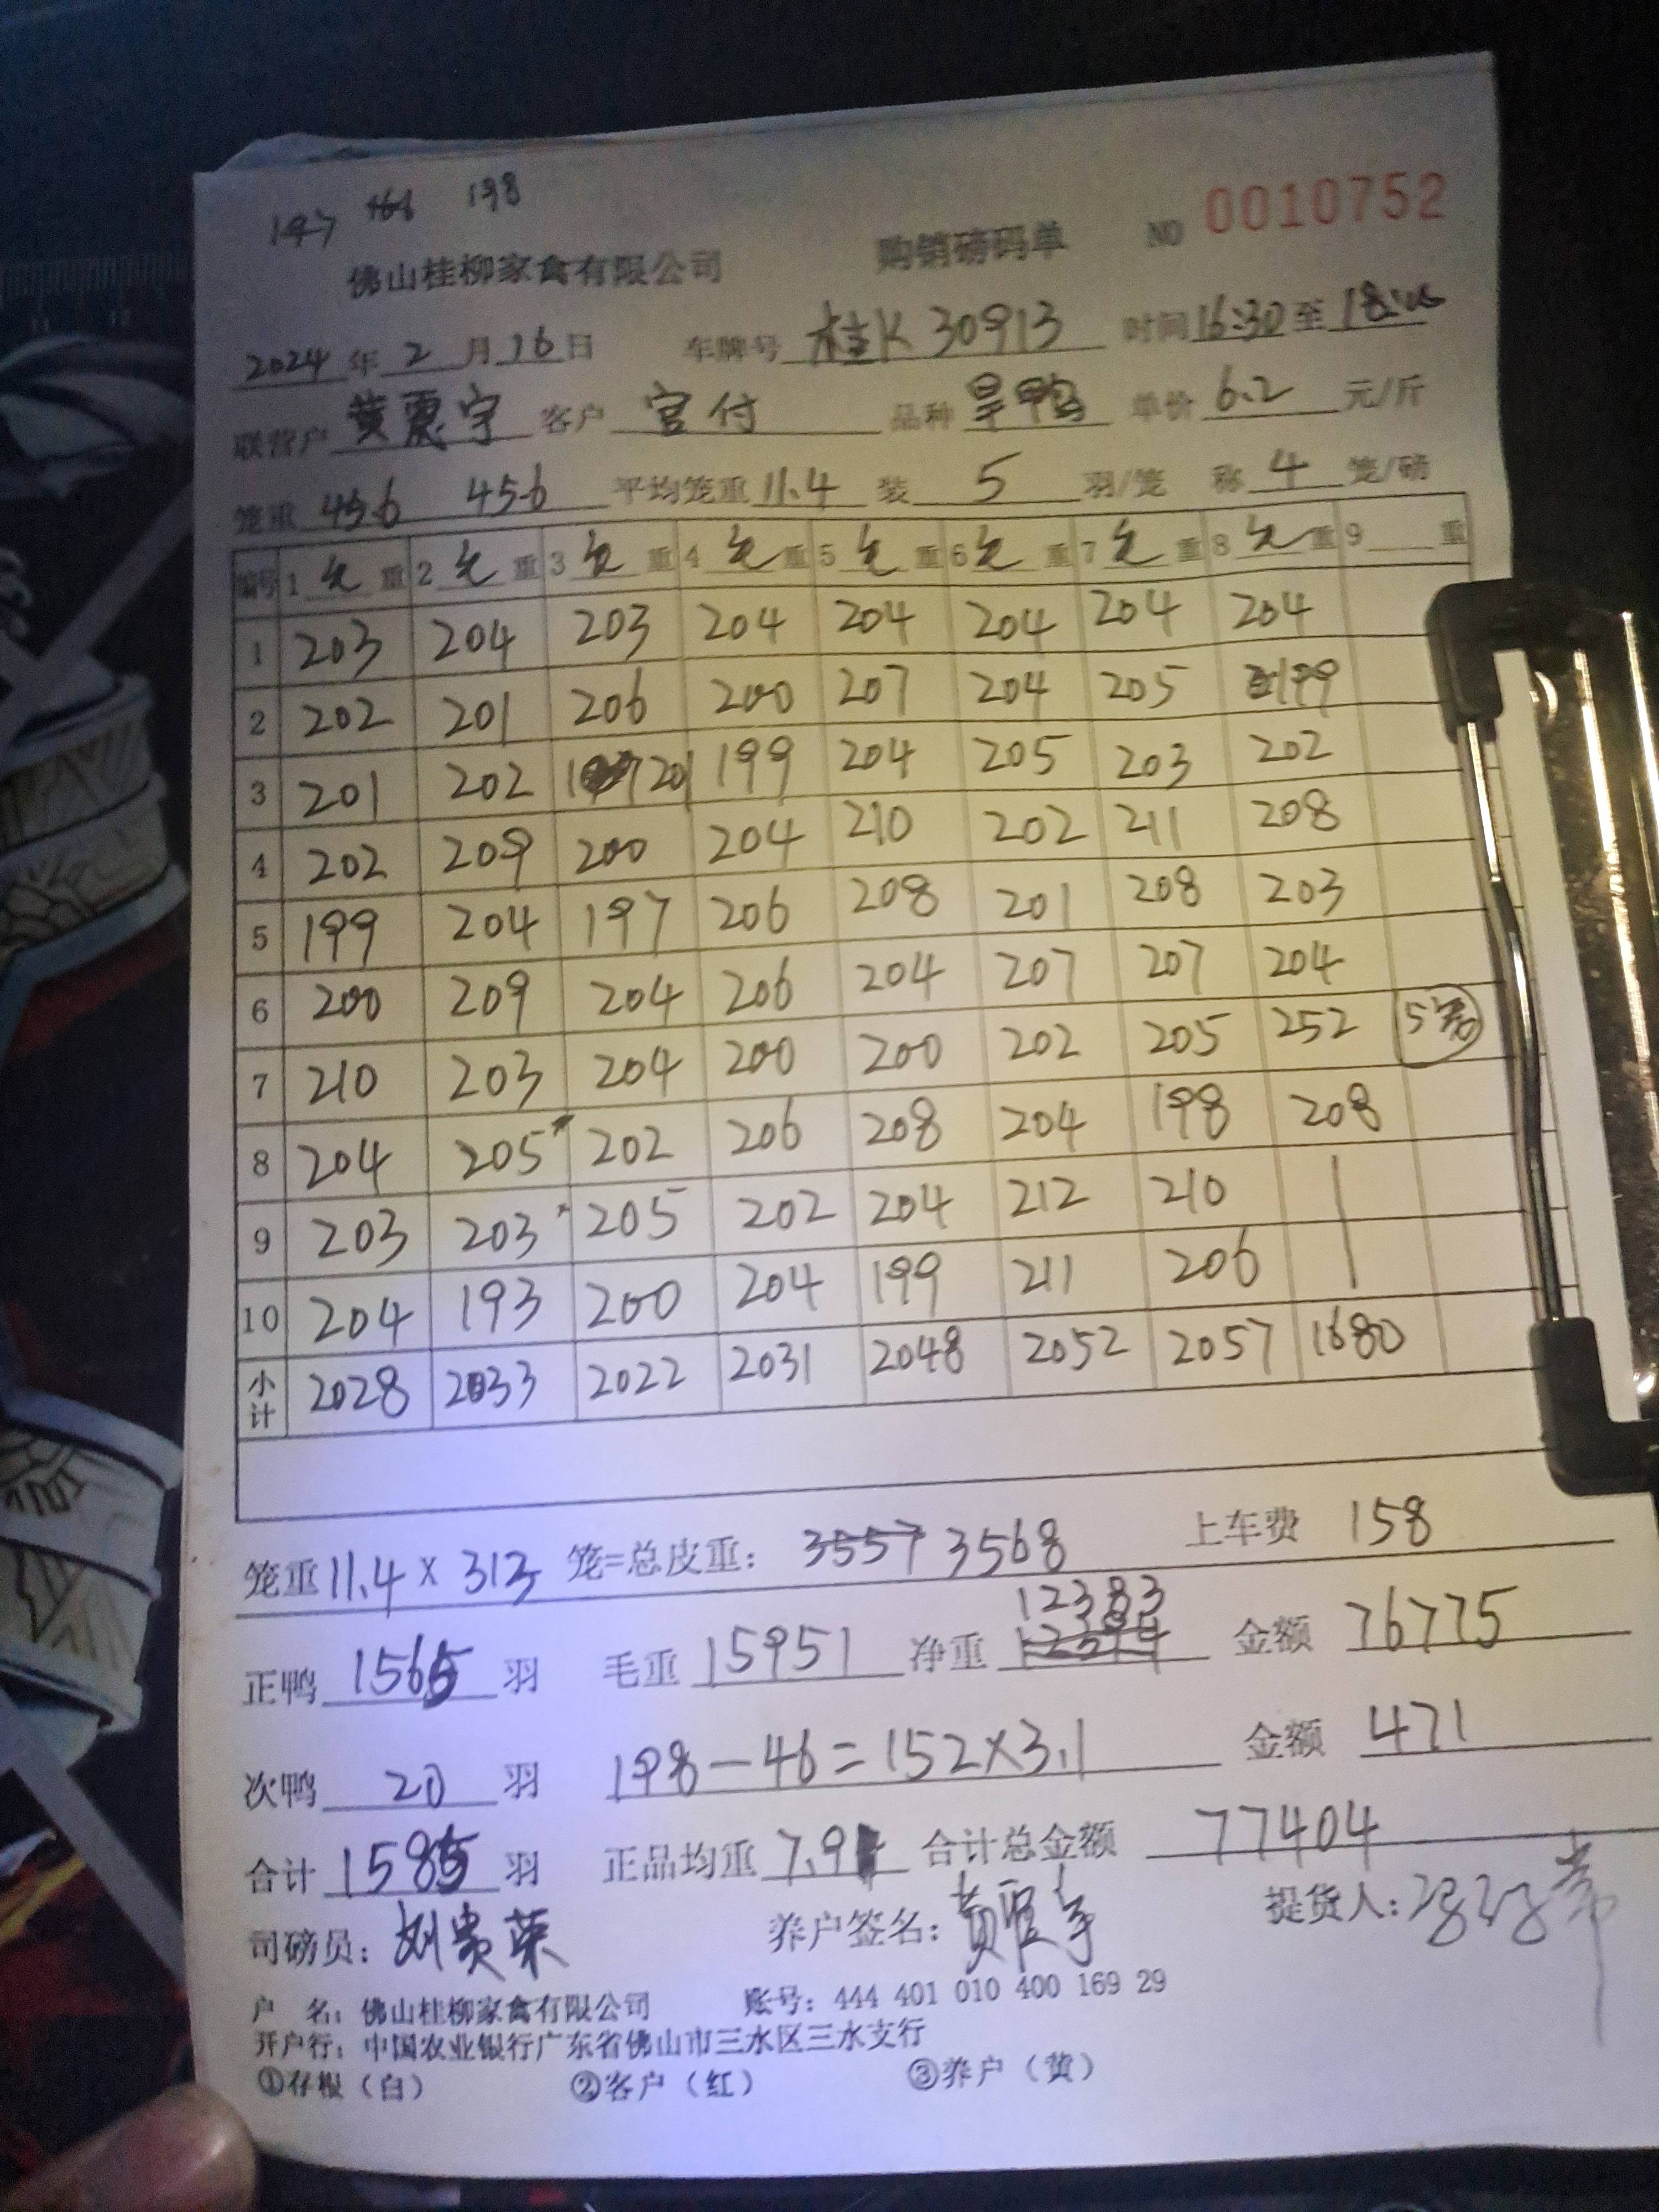 147 168 198
佛山桂柳家禽有限公司 购销磅码单 NO 0010752
2024年2月16日 车牌号 桂K 30913 时间16:30至18:
联营户 黄震宇 客户 宫付 品种 旱鸭 单价 6.2 元/斤
笼重 45.6 45.6 平均笼重 11.4 装 5 羽/笼 称 4 笼/磅
编号 1 毛重 2 毛重 3 毛重 4 毛重 5 毛重 6 毛重 7 毛重 8 毛重 9 重
1 203 204 203 204 204 204 204 204
2 202 201 206 200 207 204 205 199
3 201 202 201 199 204 205 203 202
4 202 209 200 204 210 202 211 208
5 199 204 197 206 208 201 208 203
6 200 209 204 206 204 207 207 204
7 210 203 204 200 200 202 205 252 5笼
8 204 205 202 206 208 204 198 208
9 203 203 205 202 204 212 210
10 204 193 200 204 199 211 206
小计 2028 2033 2022 2031 2048 2052 2057 1680
笼重 11.4 × 313 笼=总皮重: 3557 3568 上车费 158
正鸭 1565 羽 毛重 15951 净重 12394 12383 金额 76775
次鸭 20 羽 198-46=152×3.1 金额 471
合计 1585 羽 正品均重 7.91 合计总金额 77404
司磅员: 刘贵荣 养户签名: 黄震宇 提货人:
户 名: 佛山桂柳家禽有限公司 账号: 444 401 010 400 169 29
开户行: 中国农业银行广东省佛山市三水区三水支行
①存根(白) ②客户(红) ③养户(黄)